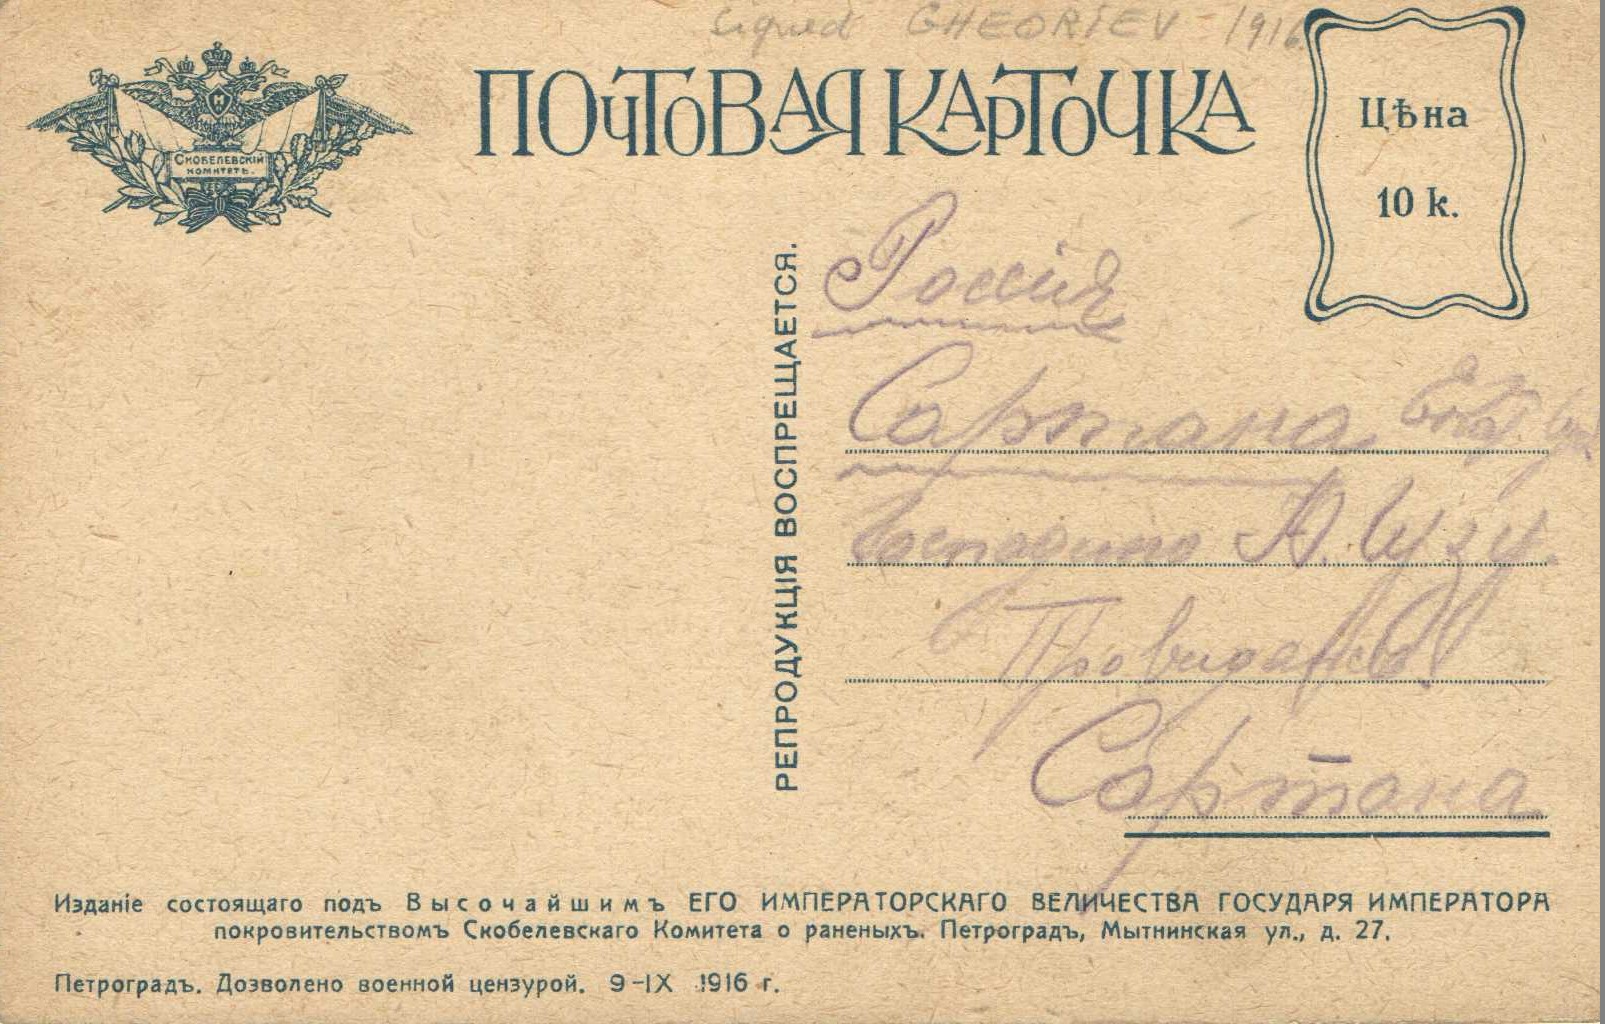 signed GHEORIEV - 1916
ПОЧТОВАЯ КАРТОЧКА
СКОБЕЛЕВСКІЙ
КОМИТЕТЪ.
Цѣна
10 к.
РЕПРОДУКЦІЯ ВОСПРЕЩАЕТСЯ.
Россія
Сартана
Господину А.
Провиданс
Сартана
Изданіе состоящаго подъ Высочайшимъ ЕГО ИМПЕРАТОРСКАГО ВЕЛИЧЕСТВА ГОСУДАРЯ ИМПЕРАТОРА
покровительствомъ Скобелевскаго Комитета о раненыхъ. Петроградъ, Мытнинская ул., д. 27.
Петроградъ. Дозволено военной цензурой. 9-IX 1916 г.